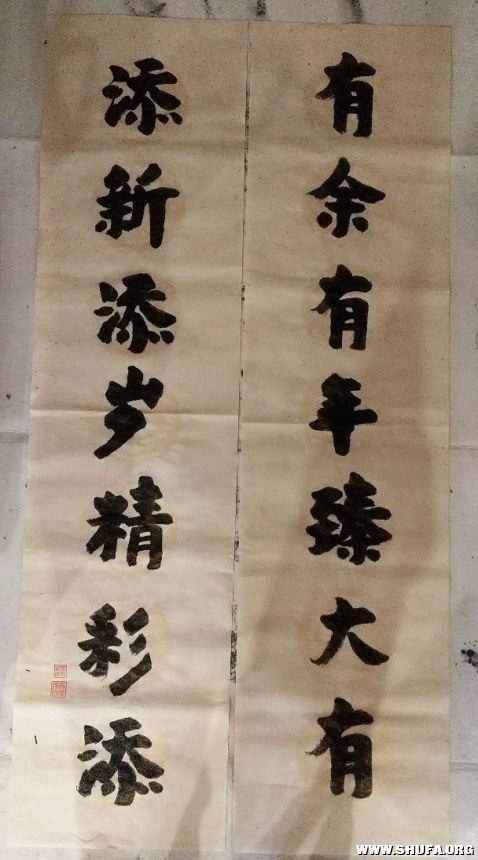 有余有年臻大有
添新添岁精彩添
WWW.SHUFA.ORG